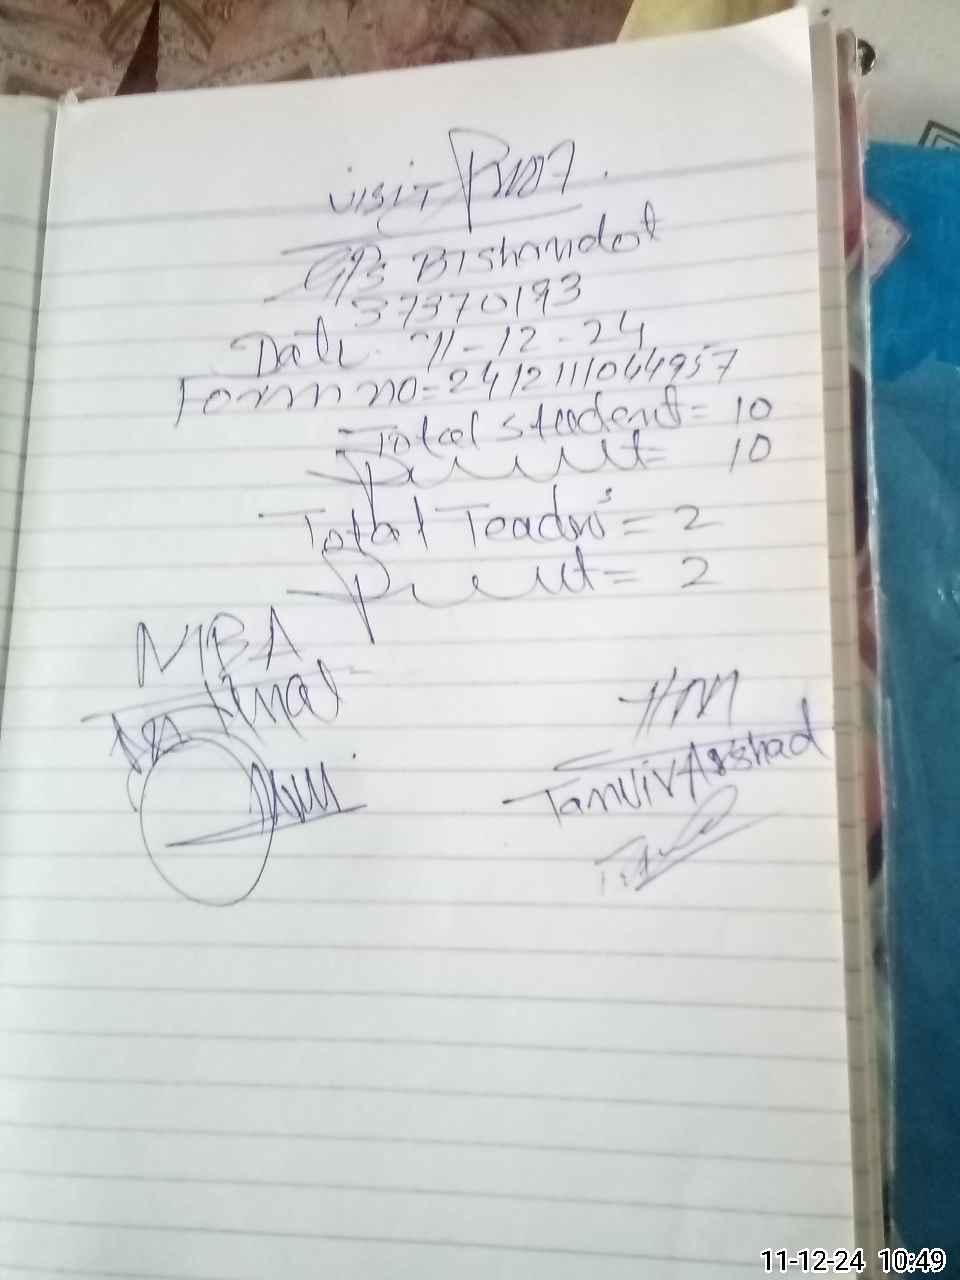 Visit
GPS Bishandot
37370193
Date 11-12-24
Form no = 2412111044957
Total Student = 10
Present = 10
Total Teachers = 2
Present = 2
MEA
HM
Tanvir Arshad
11-12-24 10:49